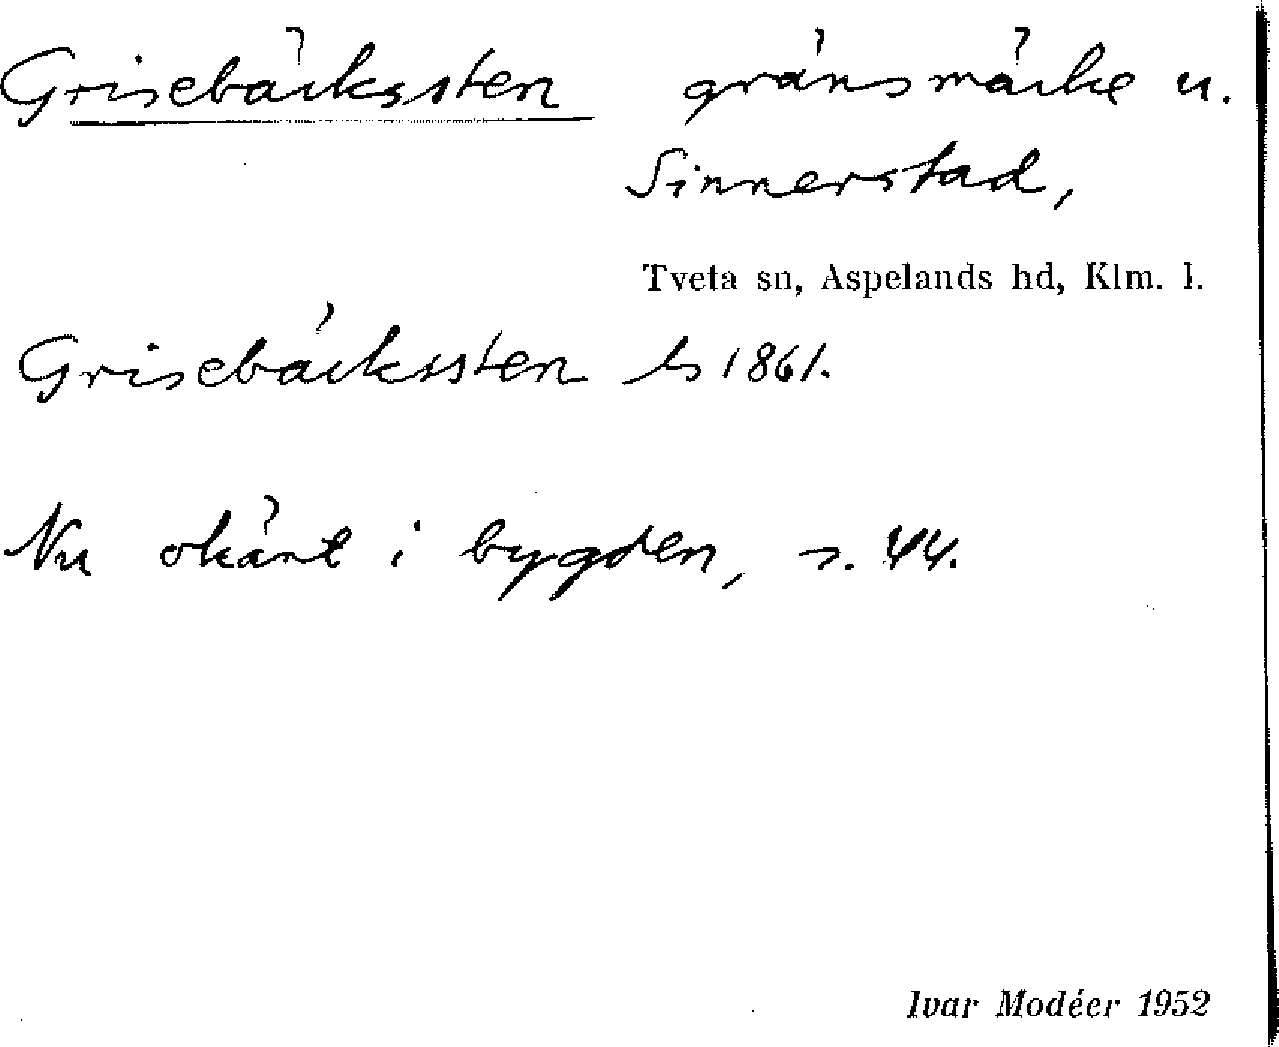 Grisebäcksten gränsmärke u.
Sinnerstad,
Tveta sn, Aspelands hd, Klm. l.
Grisebäcksten ls 1861.
Nu okänt i bygden, s. 44.
Ivar Modéer 1952